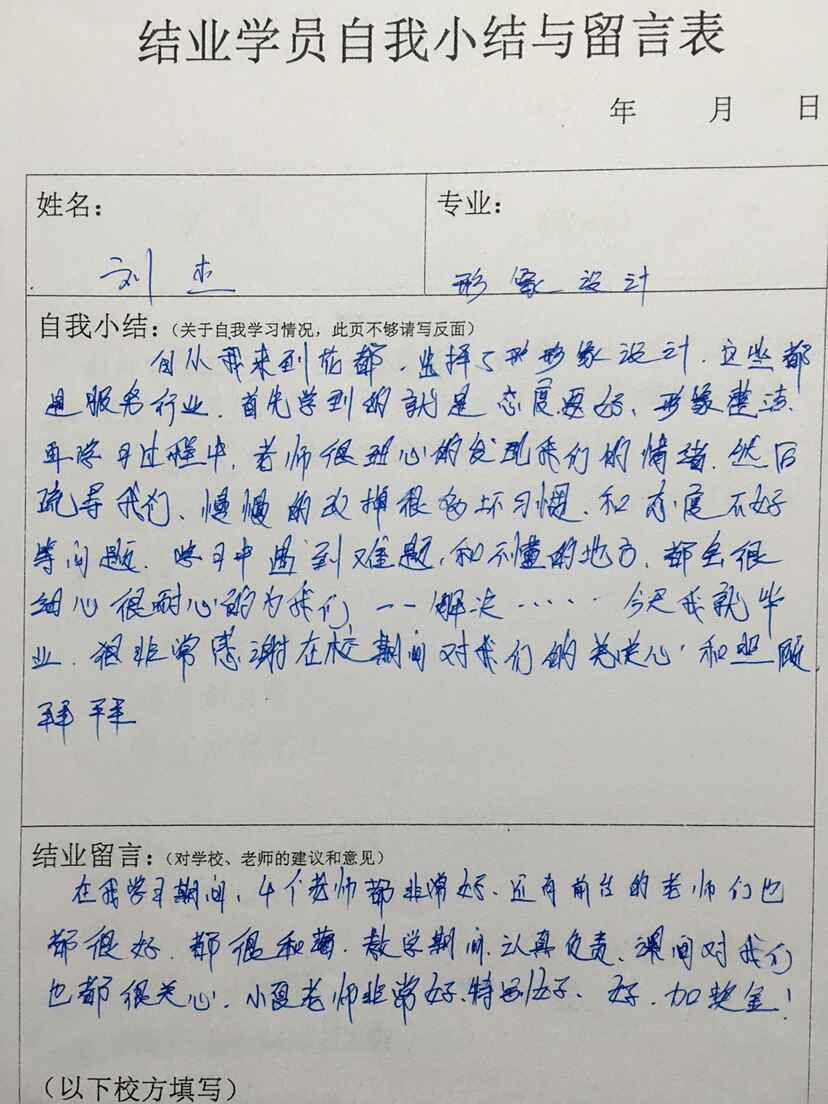 结业学员自我小结与留言表
年 月 日
姓名： 专业：
刘杰 形象设计
自我小结：（关于自我学习情况，此页不够请写反面）
自从我来到花都，选择了形形象设计，这些都
是服务行业，首先学到的就是态度要好，形象整洁，
再学习过程中，老师很细心的发现我们的情绪，然后
疏导我们、慢慢的改掉很多坏习惯，和态度不好
等问题，学习中遇到难题，和不懂的地方，都会很
细心很耐心的为我们一一解决…… 今天我就毕
业，很非常感谢在校期间对我们的关关心和照顾，
拜拜
结业留言：（对学校、老师的建议和意见）
在我学习期间，4个老师都非常好、还有前台的老师们也
都很好，都很和蔼，教学期间，认真负责、课间对我们
也都很关心，小夏老师非常好、特别好、好，加奖金！
（以下校方填写）